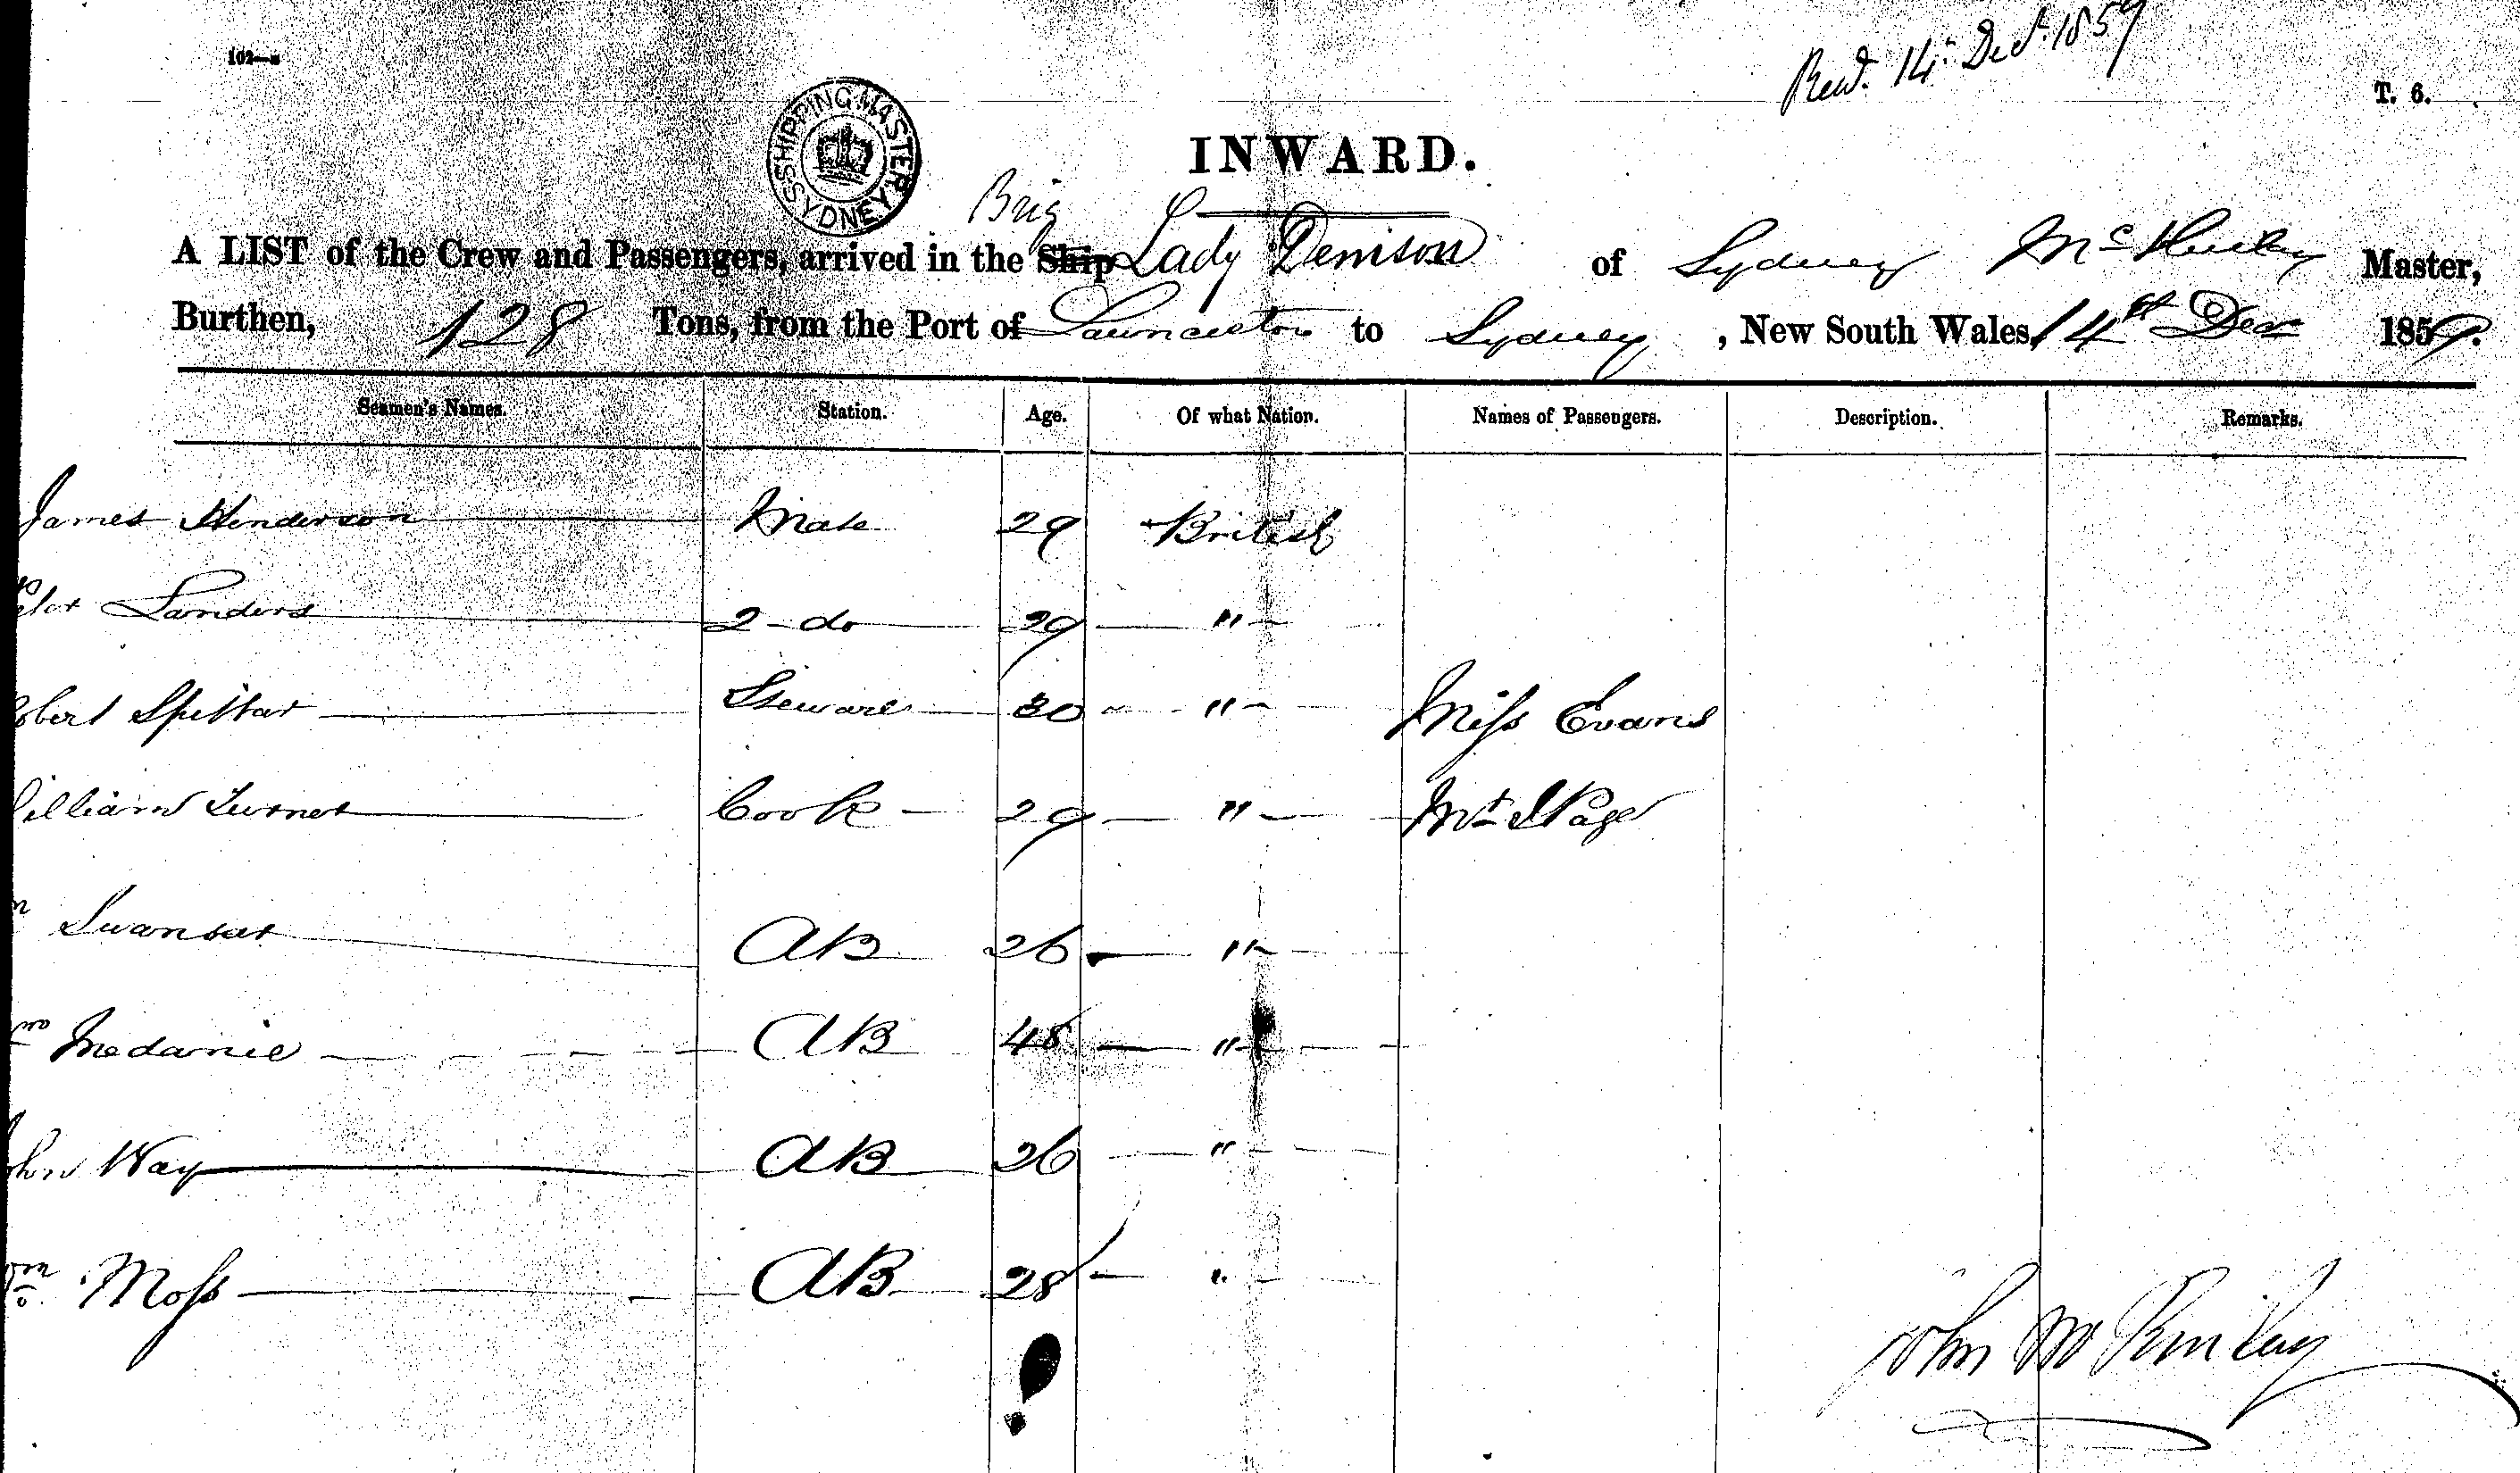 102—
Recd. 14th Decr. 1859
T. 6.
SHIPPING MASTERS SYDNEY
INWARD.
Brig
A LIST of the Crew and Passengers, arrived in the Ship Lady Denison of Sydney Master,
Burthen, 128 Tons, from the Port of Launceston to Sydney, New South Wales, 14th Dec 1859.
Seamen's Names. Station. Age. Of what Nation. Names of Passengers. Description. Remarks.
James Henderson Mate 29 British
Sanders 2 - do 29 "
obert Spittar Steward 30 " Miss Evans
illiam Turner Cook 29 " Page
AB 26 "
AB 48 "
ohn Way AB 26 "
Wm Moss AB 28 "
John McKinlay